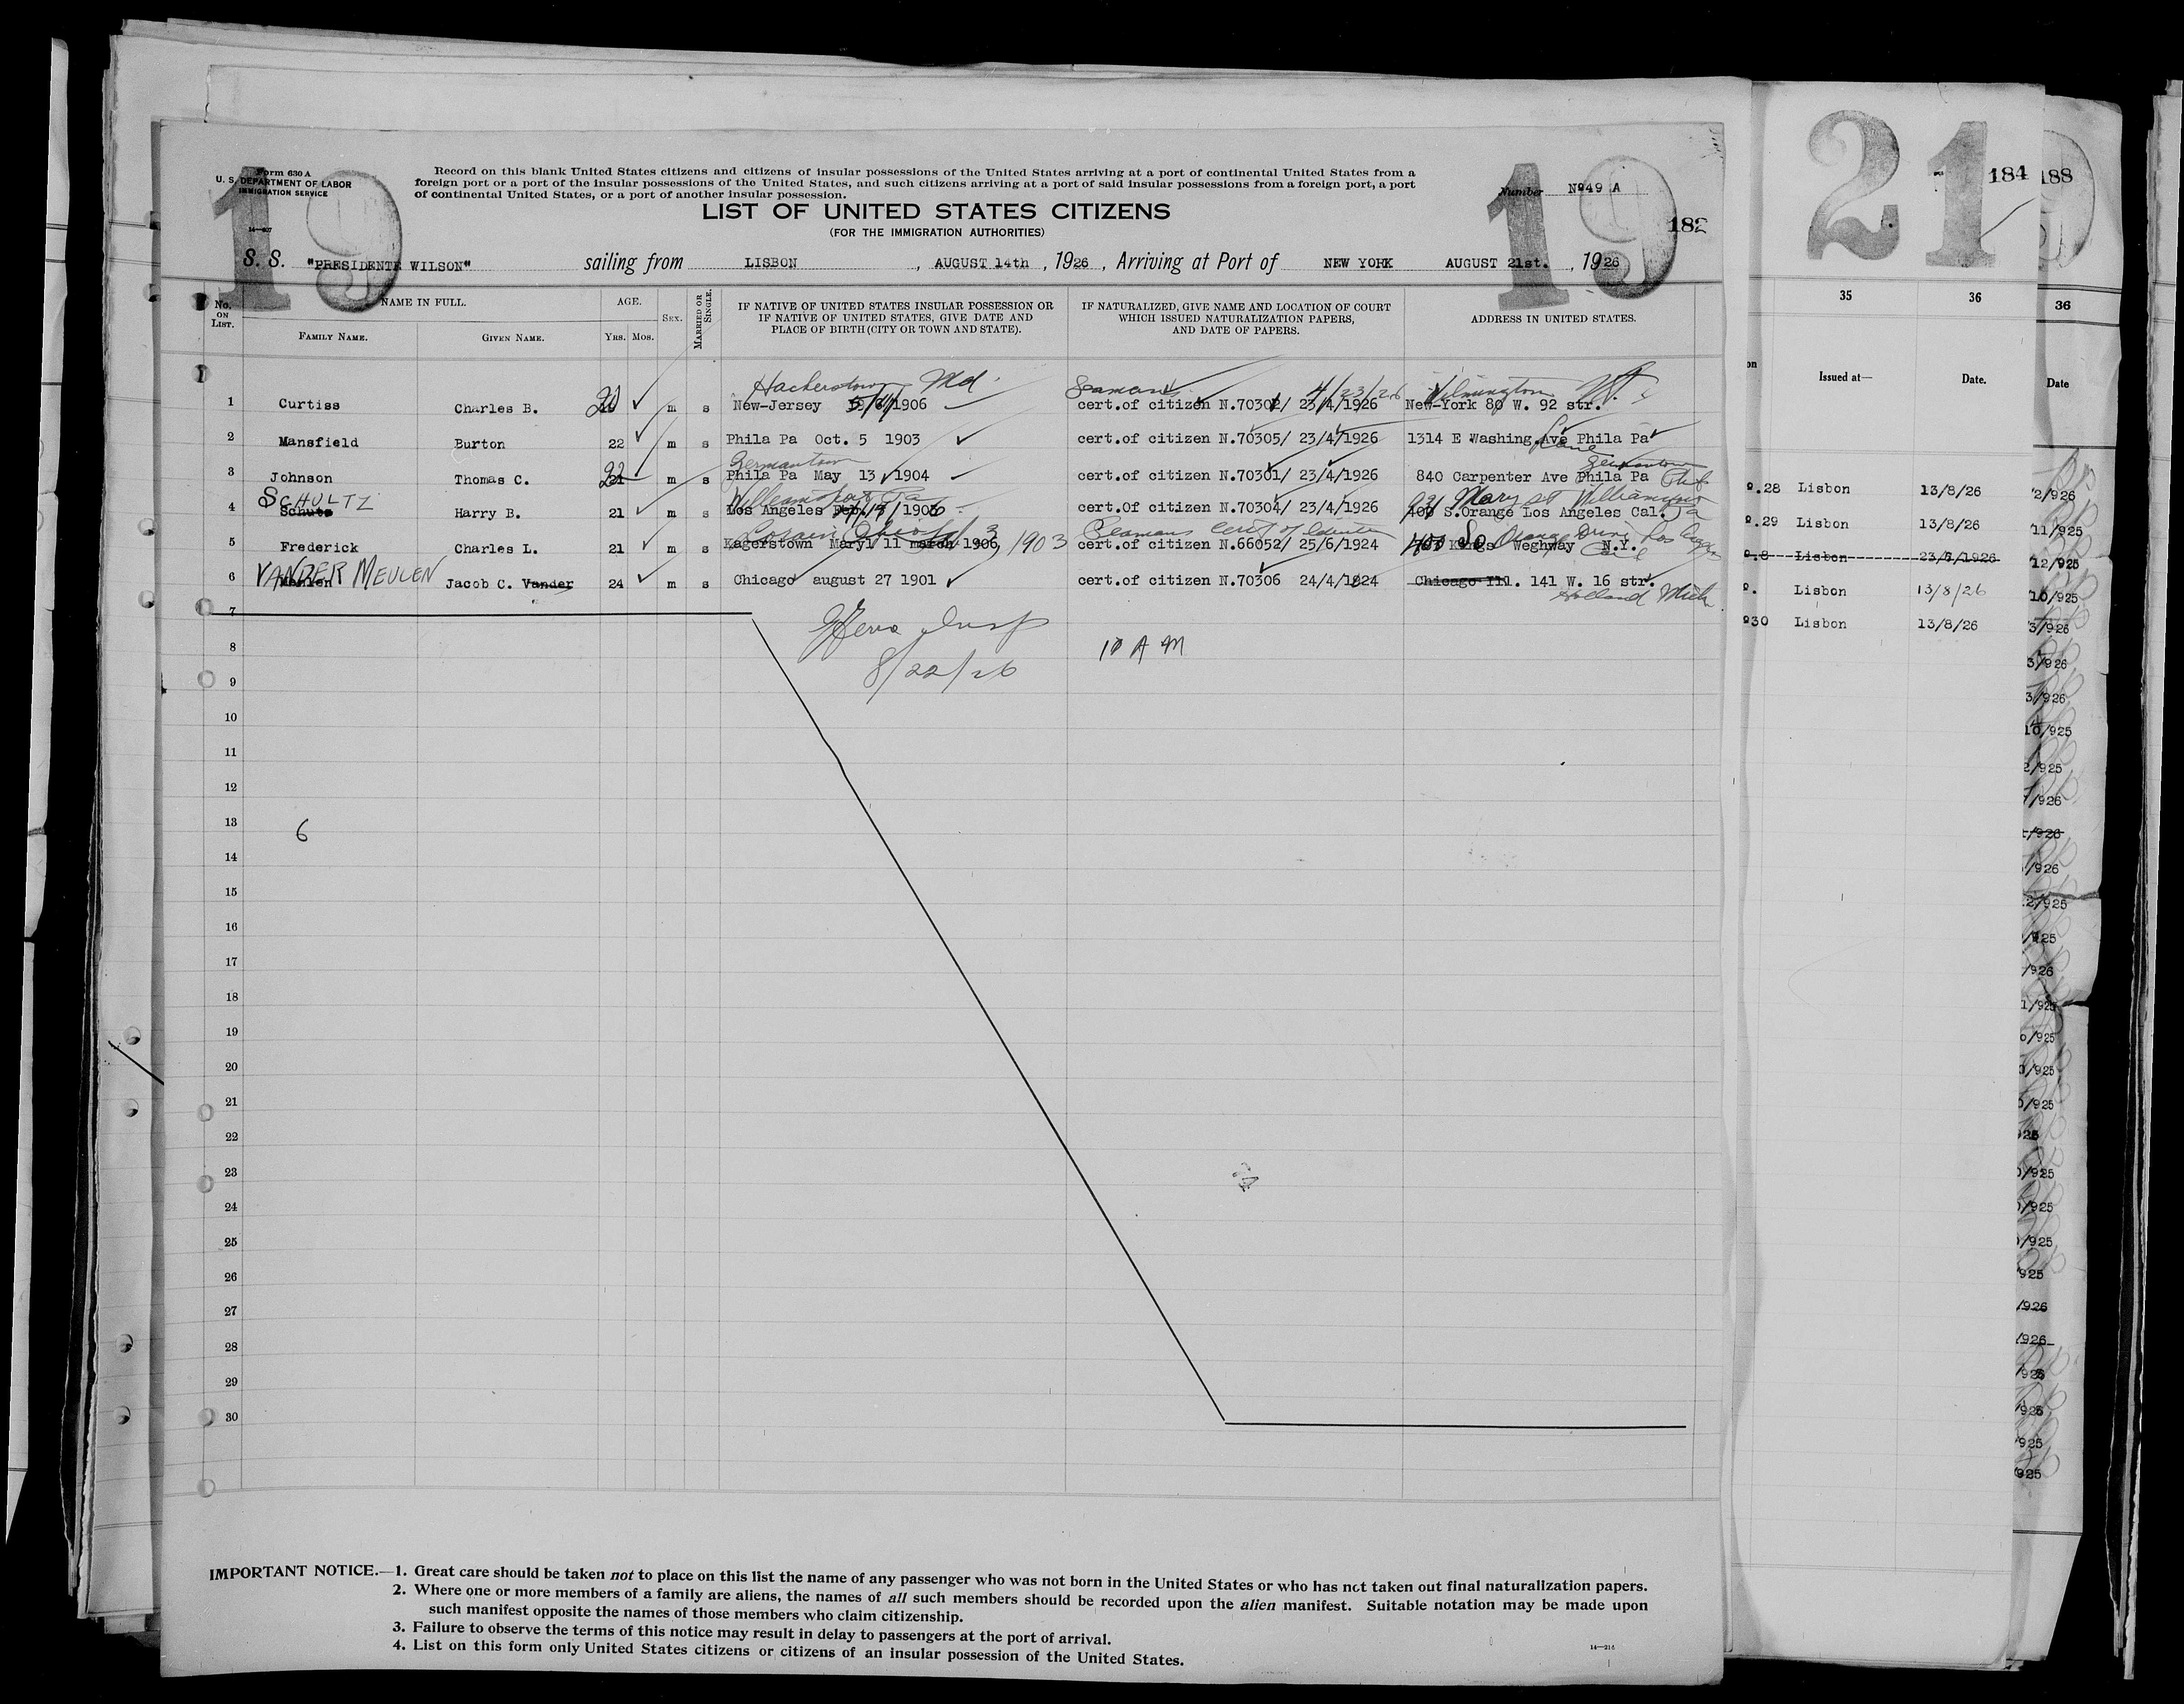 Form 630 A
U. S. DEPARTMENT OF LABOR
IMMIGRATION SERVICE
19
Record on this blank United States citizens and citizens of insular possessions of the United States arriving at a port of continental United States from a
foreign port or a port of the insular possessions of the United States, and such citizens arriving at a port of said insular possessions from a foreign port, a port
of continental United States, or a port of another insular possession.
Number Nº49 A
19
182
LIST OF UNITED STATES CITIZENS
(FOR THE IMMIGRATION AUTHORITIES)
S. S. "PRESIDENTE WILSON" sailing from LISBON, AUGUST 14th, 1926, Arriving at Port of NEW YORK AUGUST 21st., 1926
No. ON LIST. NAME IN FULL. AGE. SEX. MARRIED OR SINGLE.
FAMILY NAME. GIVEN NAME. YRS. MOS.
IF NATIVE OF UNITED STATES INSULAR POSSESSION OR
IF NATIVE OF UNITED STATES, GIVE DATE AND
PLACE OF BIRTH (CITY OR TOWN AND STATE).
IF NATURALIZED, GIVE NAME AND LOCATION OF COURT
WHICH ISSUED NATURALIZATION PAPERS,
AND DATE OF PAPERS.
ADDRESS IN UNITED STATES.
Md. Seaman 4/23/26 Wilmington
1 Curtiss Charles B. 20 m s New-Jersey 1906 cert.of citizen N.70302/ 23/4/1926 New-York 80 W. 92 str.
2 Mansfield Burton 22 m s Phila Pa Oct. 5 1903 cert.of citizen N.70305/ 23/4/1926 1314 E Washing.Ave Phila Pa
Lane
Germantown Germantown
3 Johnson Thomas C. 22 m s Phila Pa May 13 1904 cert.of citizen N.70301/ 23/4/1926 840 Carpenter Ave Phila Pa
SCHULTZ Williamsport Pa Mary St Williamsport Pa
4 Schutz Harry B. 21 m s Los Angeles Feb. 1906 cert.Of citizen N.70304/ 23/4/1926 406 S.Orange Los Angeles Cal.
Lorain Ohio 1903 Seamans cert of So Orange Drive Los Angeles Cal
5 Frederick Charles L. 21 m s Kagerstown Maryl 11 march 1906 cert.of citizen N.66052/ 25/6/1924 Kings Weghway N.Y.
VANDER MEULEN
6 Meulen Jacob C. Vander 24 m s Chicago august 27 1901 cert.of citizen N.70306 24/4/1924 Chicago Ill. 141 W. 16 str.
Holland Mich
7
Insp
8 10 A M
8/22/26
9
10
11
12
13 6
14
15
16
17
18
19
20
21
22
23
24
25
26
27
28
29
30
IMPORTANT NOTICE.—1. Great care should be taken not to place on this list the name of any passenger who was not born in the United States or who has not taken out final naturalization papers.
2. Where one or more members of a family are aliens, the names of all such members should be recorded upon the alien manifest. Suitable notation may be made upon
such manifest opposite the names of those members who claim citizenship.
3. Failure to observe the terms of this notice may result in delay to passengers at the port of arrival.
4. List on this form only United States citizens or citizens of an insular possession of the United States.
14—216
21
184
35 36
Issued at— Date.
º.28 Lisbon 13/8/26
º.29 Lisbon 13/8/26
º.8 Lisbon 23/7/1926
º. Lisbon 13/8/26
º30 Lisbon 13/8/26
188
36
Date
2/926
11/925
12/925
10/925
3/926
3/926
3/926
10/925
2/925